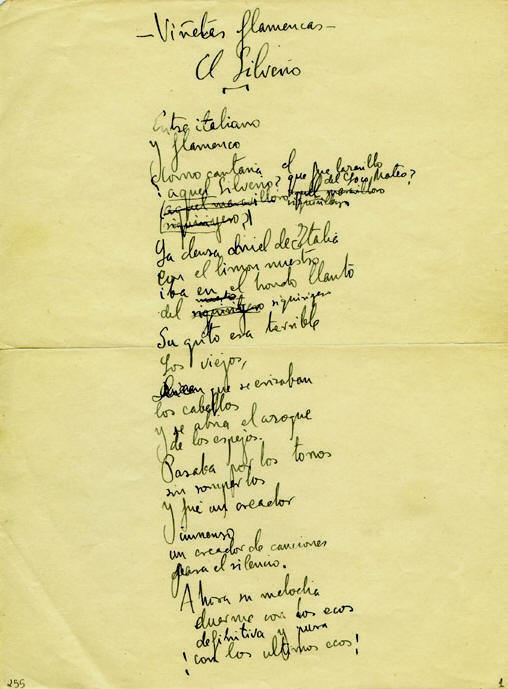 – Viñetas flamencas –
El Silverio
Entre italiano
y flamenco
¿Como cantaria
aquel Silverio? el que fue
del Loco Mateo?
(aquel maravilloso aquel maravilloso
siguiriyero?) siguiriyero
La densa miel de Italia
con el limon nuestro
iba en el hondo llanto
del siguiriyero siguiriyero
Su grito era terrible
Los viejos,
dicen que se erizaban
los cabellos
y se abria el azogue
de los espejos.
Pasaba por los tonos
sin romperlos
y fué un creador
immenso
un creador de canciones
para el silencio.
Ahora su melodia
duerme con los ecos
definitiva y pura
¡con los ultimos ecos!
255
1